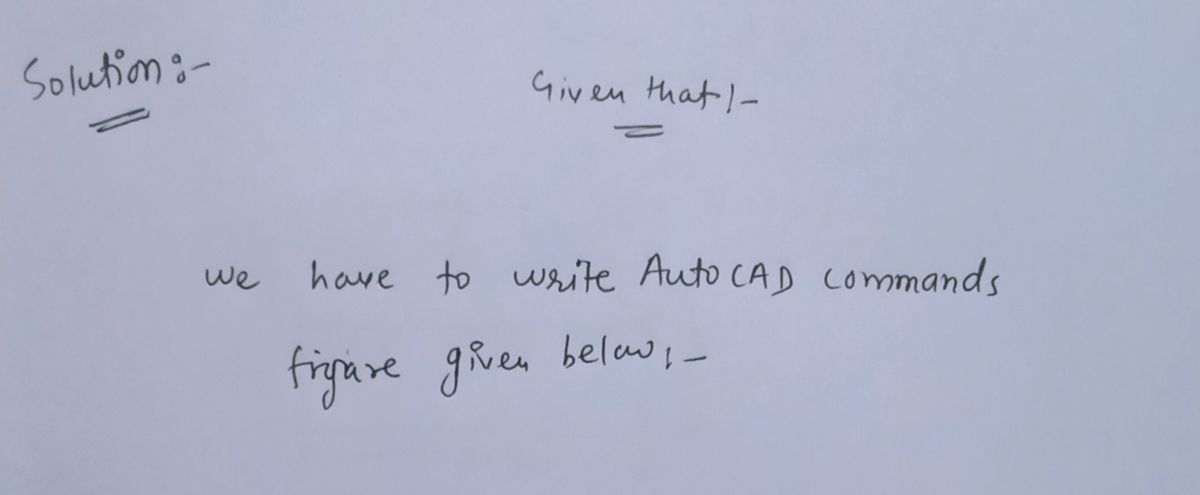 Solution:-
Given that:-
we have to write AutoCAD commands
figure given below:-